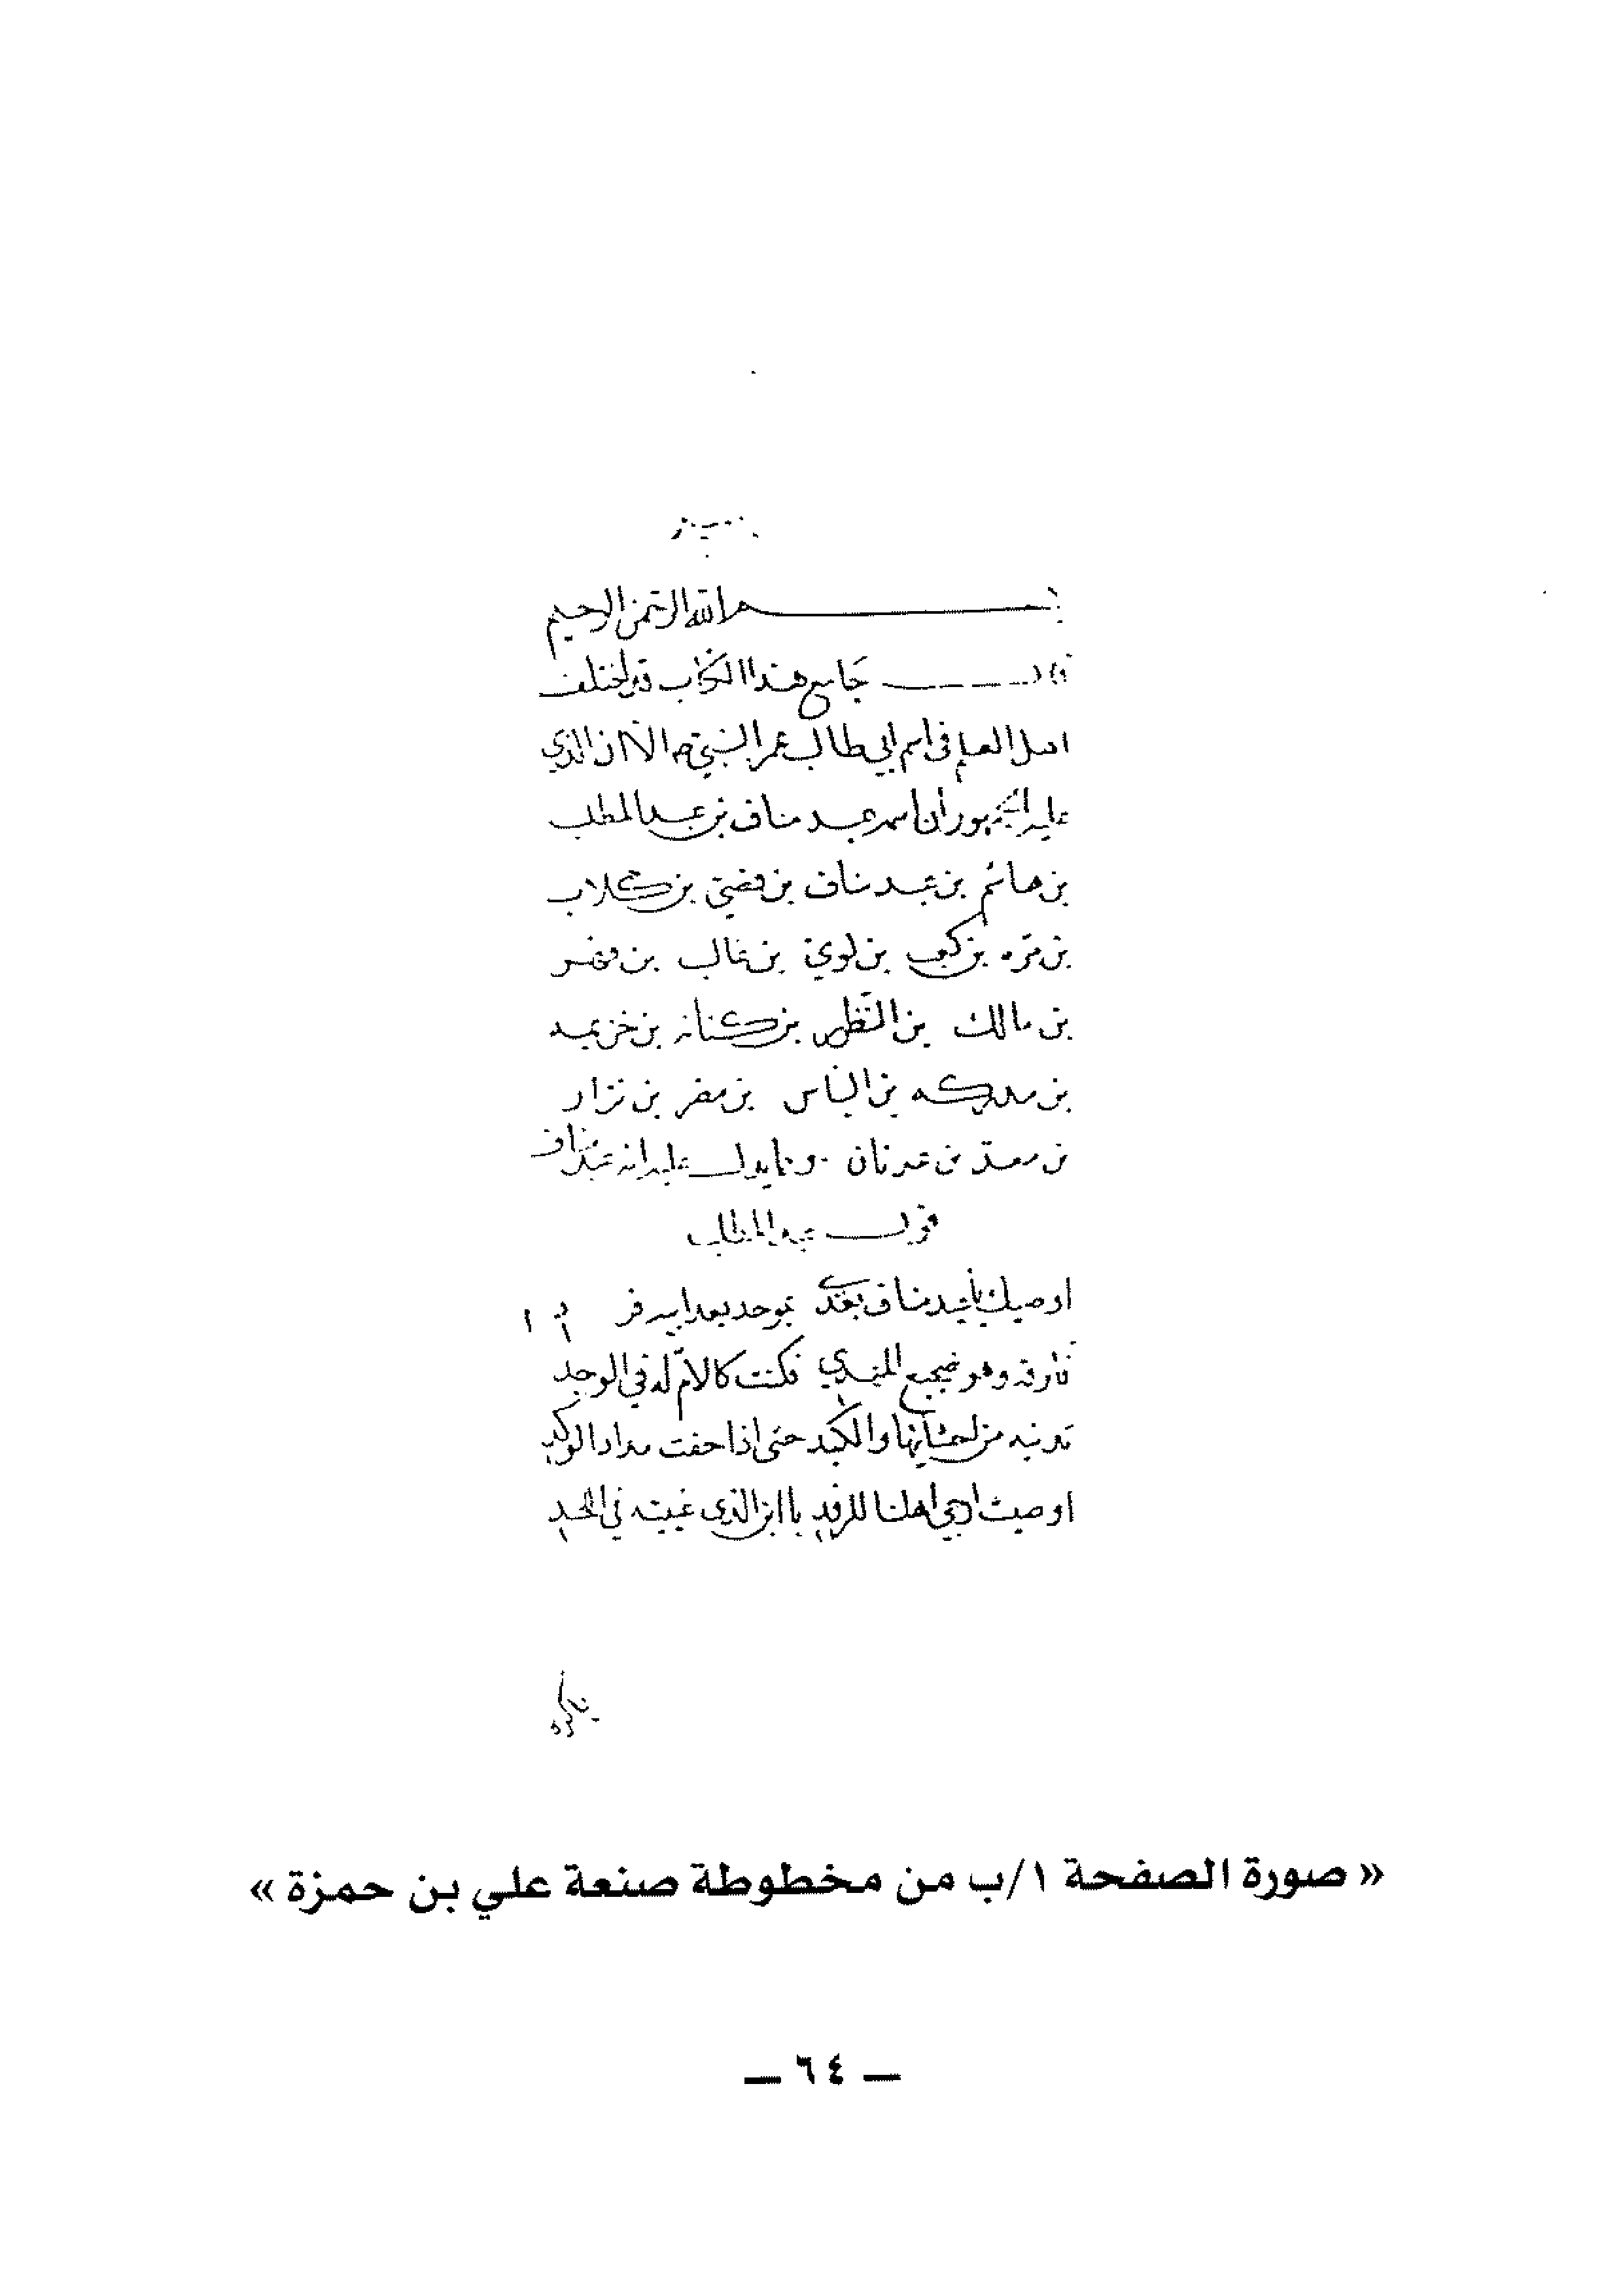 بسم الله الرحمن الرحيم
قال جامع هذا الكتاب قد اختلف
اهل العلم في اسم ابي طالب عم النبي ص الا ان الذي
عليه الجمهور ان اسمه عبد مناف بن عبد المطلب
بن هاشم بن عبد مناف بن قصي بن كلاب
بن مره بن كعب بن لوي بن غالب بن فهر
بن مالك بن النظر بن كنانه بن خزيمه
بن مدركه بن الياس بن مضر بن نزار
بن معد بن عدنان ومما يدل عليه انه عبد مناف
قول عبد المطلب
اوصيك يا عبد مناف بعدي بموحد بعد ابيه فرد
فارقه وهو ضجيع المهدي فكنت كالام له في الوجد
تدنيه من احشائها والكبد حتى اذا خفت مداد الوكد
اوصيت ارجى اهلنا للرفد يا ابن الذي غيبته في اللحد
« صورة الصفحة ١/ب من مخطوطة صنعة علي بن حمزة »
— ٦٤ —